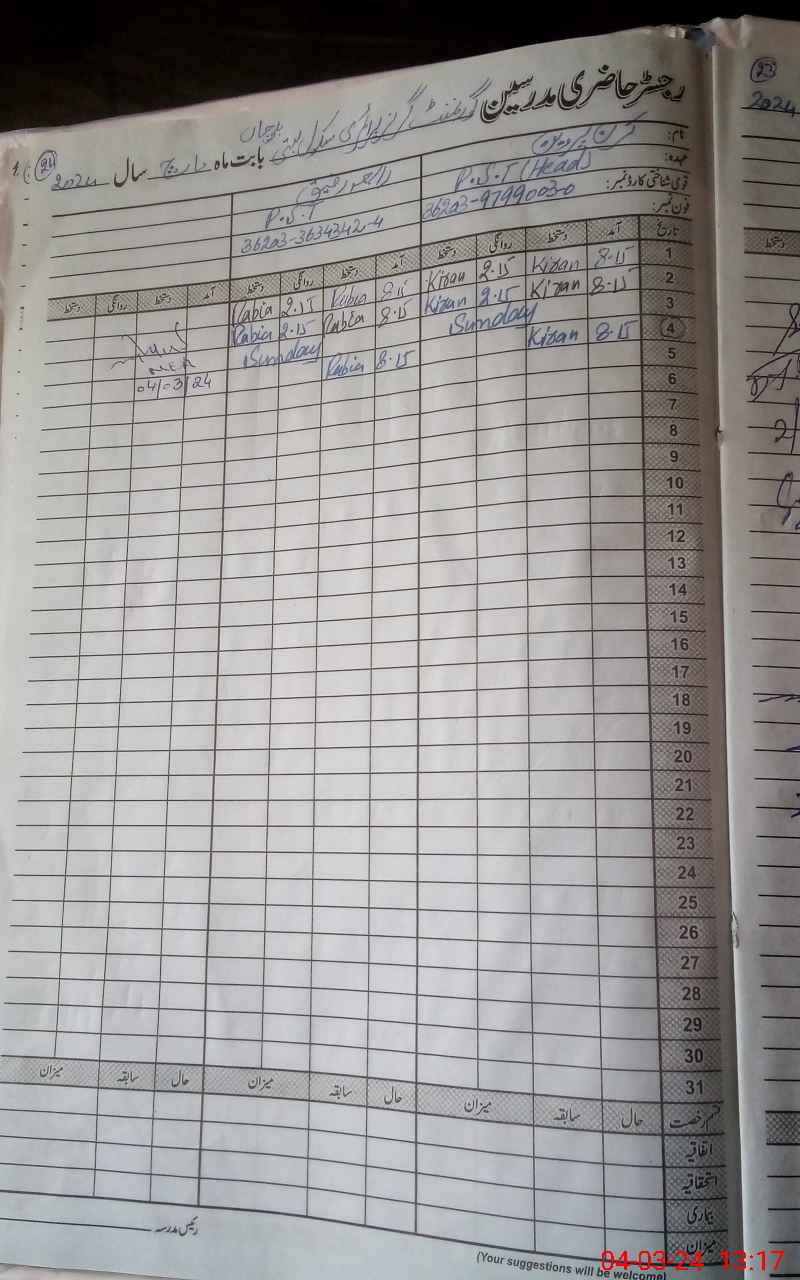 رجسٹر حاضری مدرسین گورنمنٹ گرلز پرائمری سکول بستی
بابت ماہ مارچ سال 2024
24
نام: کرن پروین
عہدہ: P.S.T (Head) P.S.T
قومی شناختی کارڈ نمبر: 36203-9799003-0 36203-3634342-4
فون نمبر:
تاریخ آمد دستخط روانگی دستخط آمد دستخط روانگی دستخط آمد دستخط روانگی دستخط
1 8.15 Kiran 2.15 Kiran 8.15 Rabia 2.15 Rabia
2 8.15 Kiran 2.15 Kiran 8.15 Rabia 2.15 Rabia
3 Sunday Sunday
4 8.15 Kiran 8.15 Rabia
MEA
04/03/24
5
6
7
8
9
10
11
12
13
14
15
16
17
18
19
20
21
22
23
24
25
26
27
28
29
30
31
قسم رخصت حال سابقہ میزان حال سابقہ میزان حال سابقہ میزان
اتفاقیہ
استحقاقیہ
بیماری
میزان
رئیس مدرسہ
(Your suggestions will be welcome)
23
2024
دستخط
04-03-24 13:17